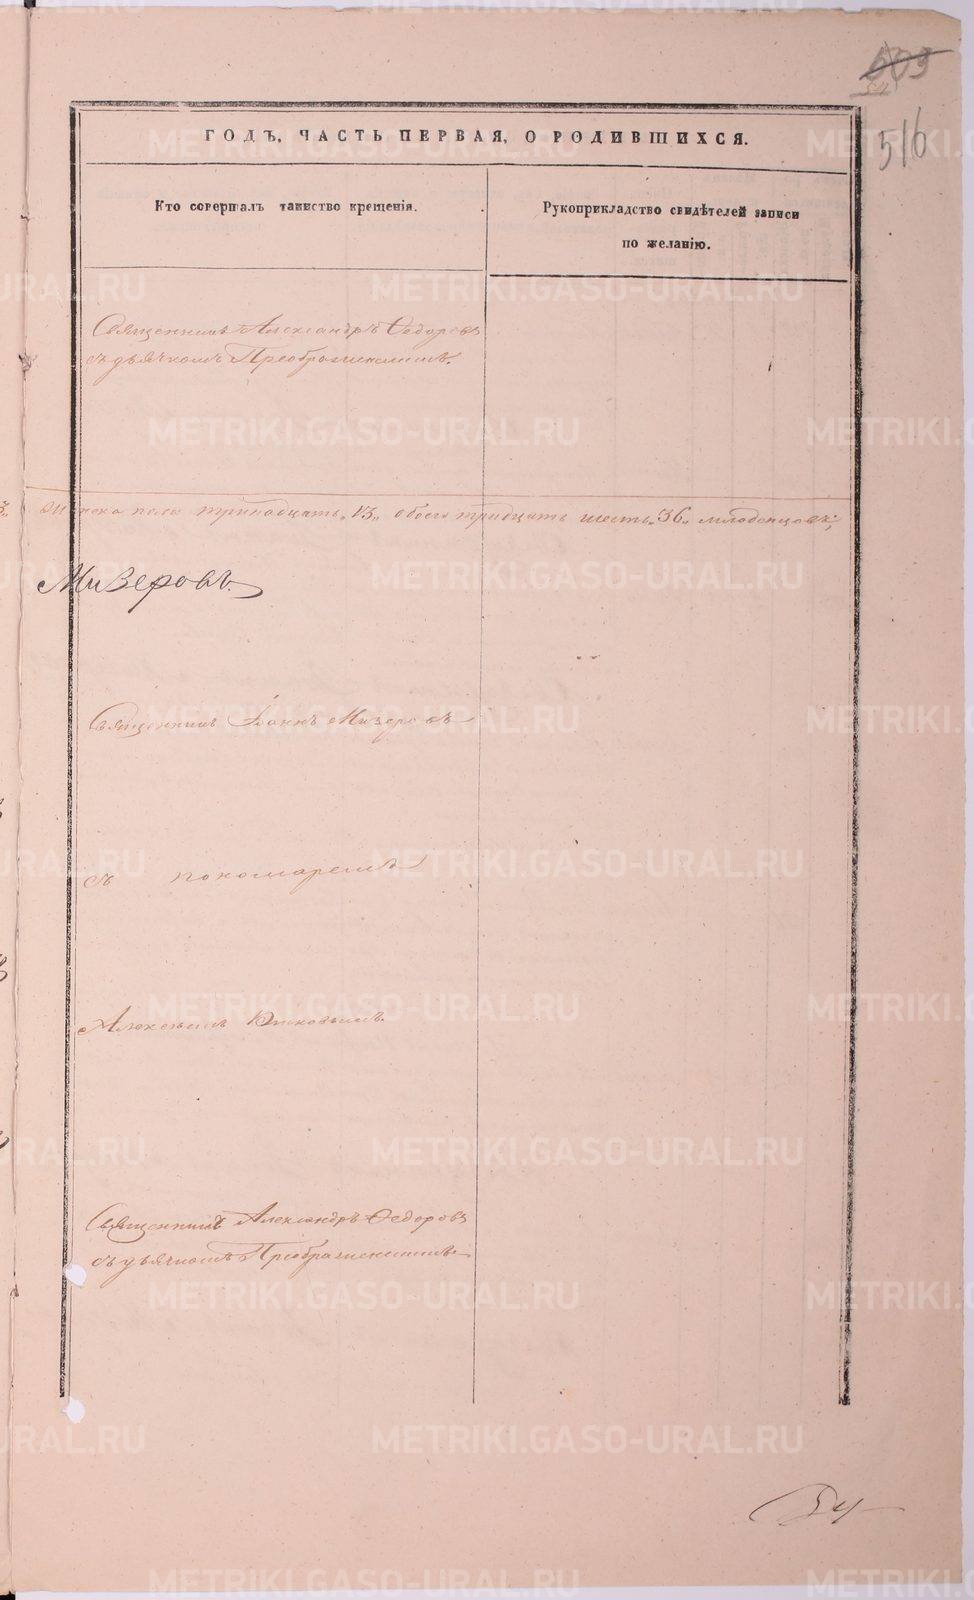 609
516
ГОДЪ, ЧАСТЬ ПЕРВАЯ, О РОДИВШИХСЯ.
Кто совершалъ таинство крещенія.
Рукоприкладство свидѣтелей записи
по желанію.
Священникъ Александръ Ѳедоровъ
съ дьячкомъ Преображенскимъ.
женска пола тринадцать „13„ обоего тридцать шесть „36„ младенцовъ;
Мизеровъ.
Священникъ Іоаннъ Мизеровъ
съ пономаремъ
Алексѣемъ
Священникъ Александръ Ѳедоровъ
съ дьячкомъ Преображенскимъ.
54
METRIKI.GASO-URAL.RU